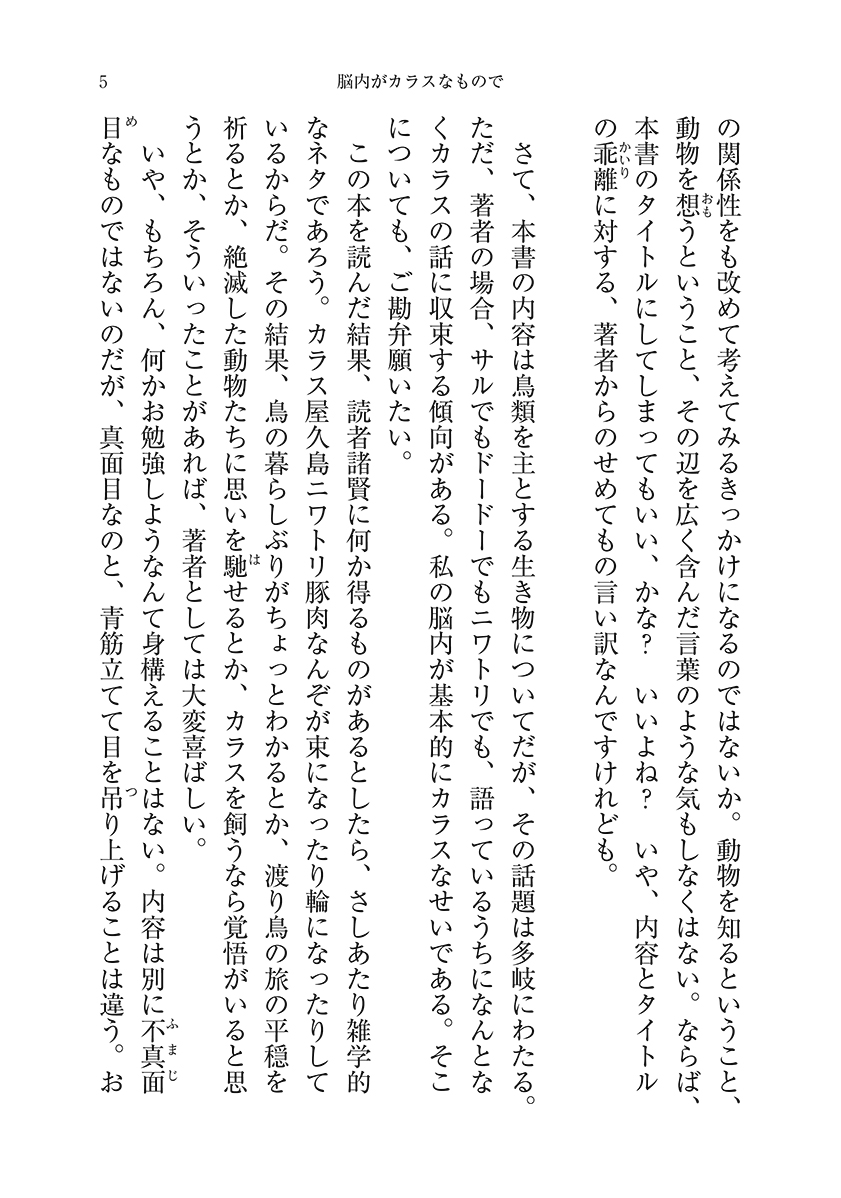 5
脳内がカラスなもので
の関係性をも改めて考えてみるきっかけになるのではないか。動物を知るということ、
動物を想うということ、その辺を広く含んだ言葉のような気もしなくはない。ならば、
本書のタイトルにしてしまってもいい、かな？　いいよね？　いや、内容とタイトル
の乖離に対する、著者からのせめてもの言い訳なんですけれども。
さて、本書の内容は鳥類を主とする生き物についてだが、その話題は多岐にわたる。
ただ、著者の場合、サルでもドードーでもニワトリでも、語っているうちになんとな
くカラスの話に収束する傾向がある。私の脳内が基本的にカラスなせいである。そこ
についても、ご勘弁願いたい。
この本を読んだ結果、読者諸賢に何か得るものがあるとしたら、さしあたり雑学的
なネタであろう。カラス屋久島ニワトリ豚肉なんぞが束になったり輪になったりして
いるからだ。その結果、鳥の暮らしぶりがちょっとわかるとか、渡り鳥の旅の平穏を
祈るとか、絶滅した動物たちに思いを馳せるとか、カラスを飼うなら覚悟がいると思
うとか、そういったことがあれば、著者としては大変喜ばしい。
いや、もちろん、何かお勉強しようなんて身構えることはない。内容は別に不真面
目なものではないのだが、真面目なのと、青筋立てて目を吊り上げることは違う。お